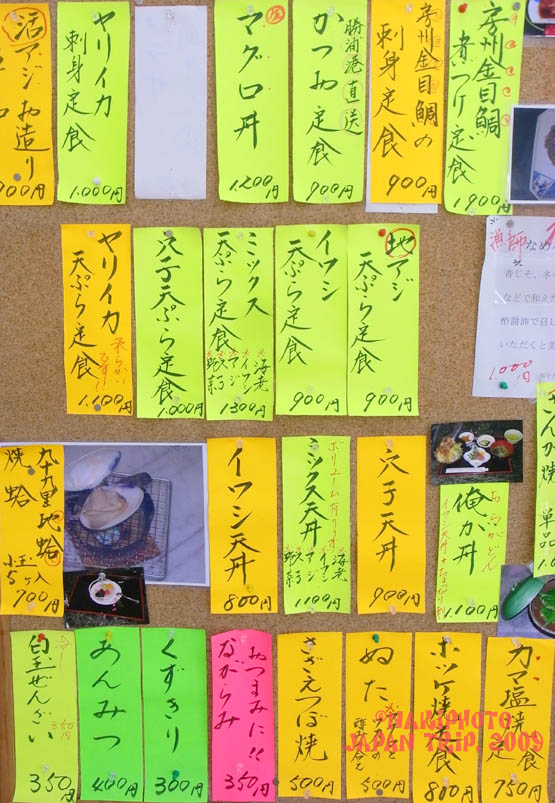 房州金目鯛
煮つけ定食
1900円
房州金目鯛の
刺身定食
900円
勝浦港直送
かつお定食
900円
マグロ丼
1200円
ヤリイカ
刺身定食
1.000円
活アジお造り
900円
漁師なめ
青じそ、ネ
などで和えた
酢醤油で召し
いただくと
1.000円
地アジ
天ぷら定食
900円
イワシ
天ぷら定食
900円
ミックス
天ぷら定食
海老
イワシ
アジ
穴子
野菜
1300円
穴子天ぷら定食
1.000円
ヤリイカ
天ぷら定食
1.100円
さんが焼
単品
俺が丼
1.100円
穴子天丼
900円
ミックス天丼
ボリューム有ります
海老
イワシ
アジ
穴子
野菜
1100円
イワシ天丼
800円
九十九里地蛤
焼蛤
小玉
5ヶ入
700円
カマ塩焼定
750円
ホッケ焼定食
800円
ぬた
500円
さざえつぼ焼
500円
おつまみに!!
ながらみ
350円
くずきり
300円
あんみつ
400円
冷し
白玉ぜんざい
350円
350円
©MAKIPHOTO
JAPAN TRIP. 2009